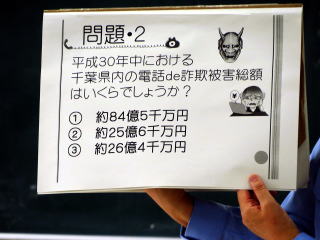 問題・2
平成30年中における
千葉県内の電話de詐欺被害総額
はいくらでしょうか？
① 約84億5千万円
② 約25億6千万円
③ 約26億4千万円